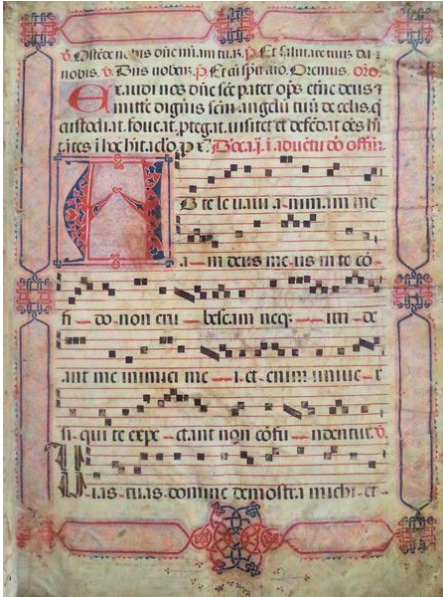 ℣. Ostẽde nobis dñe mĩam tuã. ℟. Et salutare tuũ da
nobis. ℣. Dñs uobiscũ. ℟. Et cũ spiritu tuo. Oremus. oro.
Exaudi nos dñe sc̃e pater op̃s et̃ne deus ⁊
mitte dignũs sc̃m angelũ tuũ de celis. q̃
custodiat. foueat. ptegat. uisitet et defẽdat oẽs hĩ
tãtes ĩ hoc hĩtaclo p x̃.
A D te le uaui a-nimam me
a — m deus me-us in te cõ-
fi — do non eru — bescam neq; — irri — de
ant me inimici me — i. et-enim uniue — r
si-qui te expe — ctant non cõfu — ndentur. ℣.
Uias-tuas-domine demõstra michi-et-